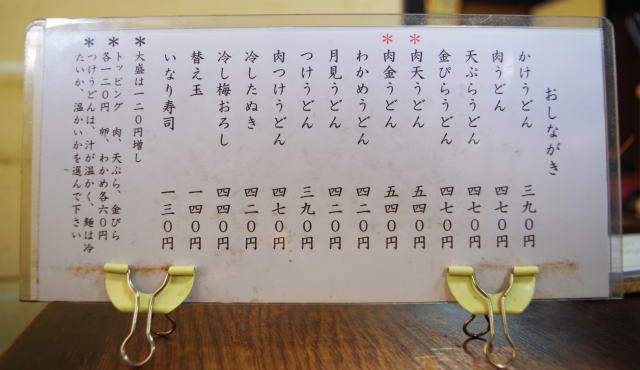 おしながき
かけうどん 三九0円
肉うどん 四七0円
天ぷらうどん 四七0円
金ぴらうどん 四七0円
*肉天うどん 五四0円
*肉金うどん 五四0円
わかめうどん 四二0円
月見うどん 四二0円
つけうどん 三九0円
肉つけうどん 四七0円
冷したぬき 四二0円
冷し梅おろし 四四0円
替え玉 一四0円
いなり寿司 一三0円
*大盛は一二0円増し
*トッピング 肉、天ぷら、金ぴら
各一二0円 卵、わかめ各六0円
*つけうどんは、汁が温かく、麺は冷
たいか、温かいかを選んで下さい